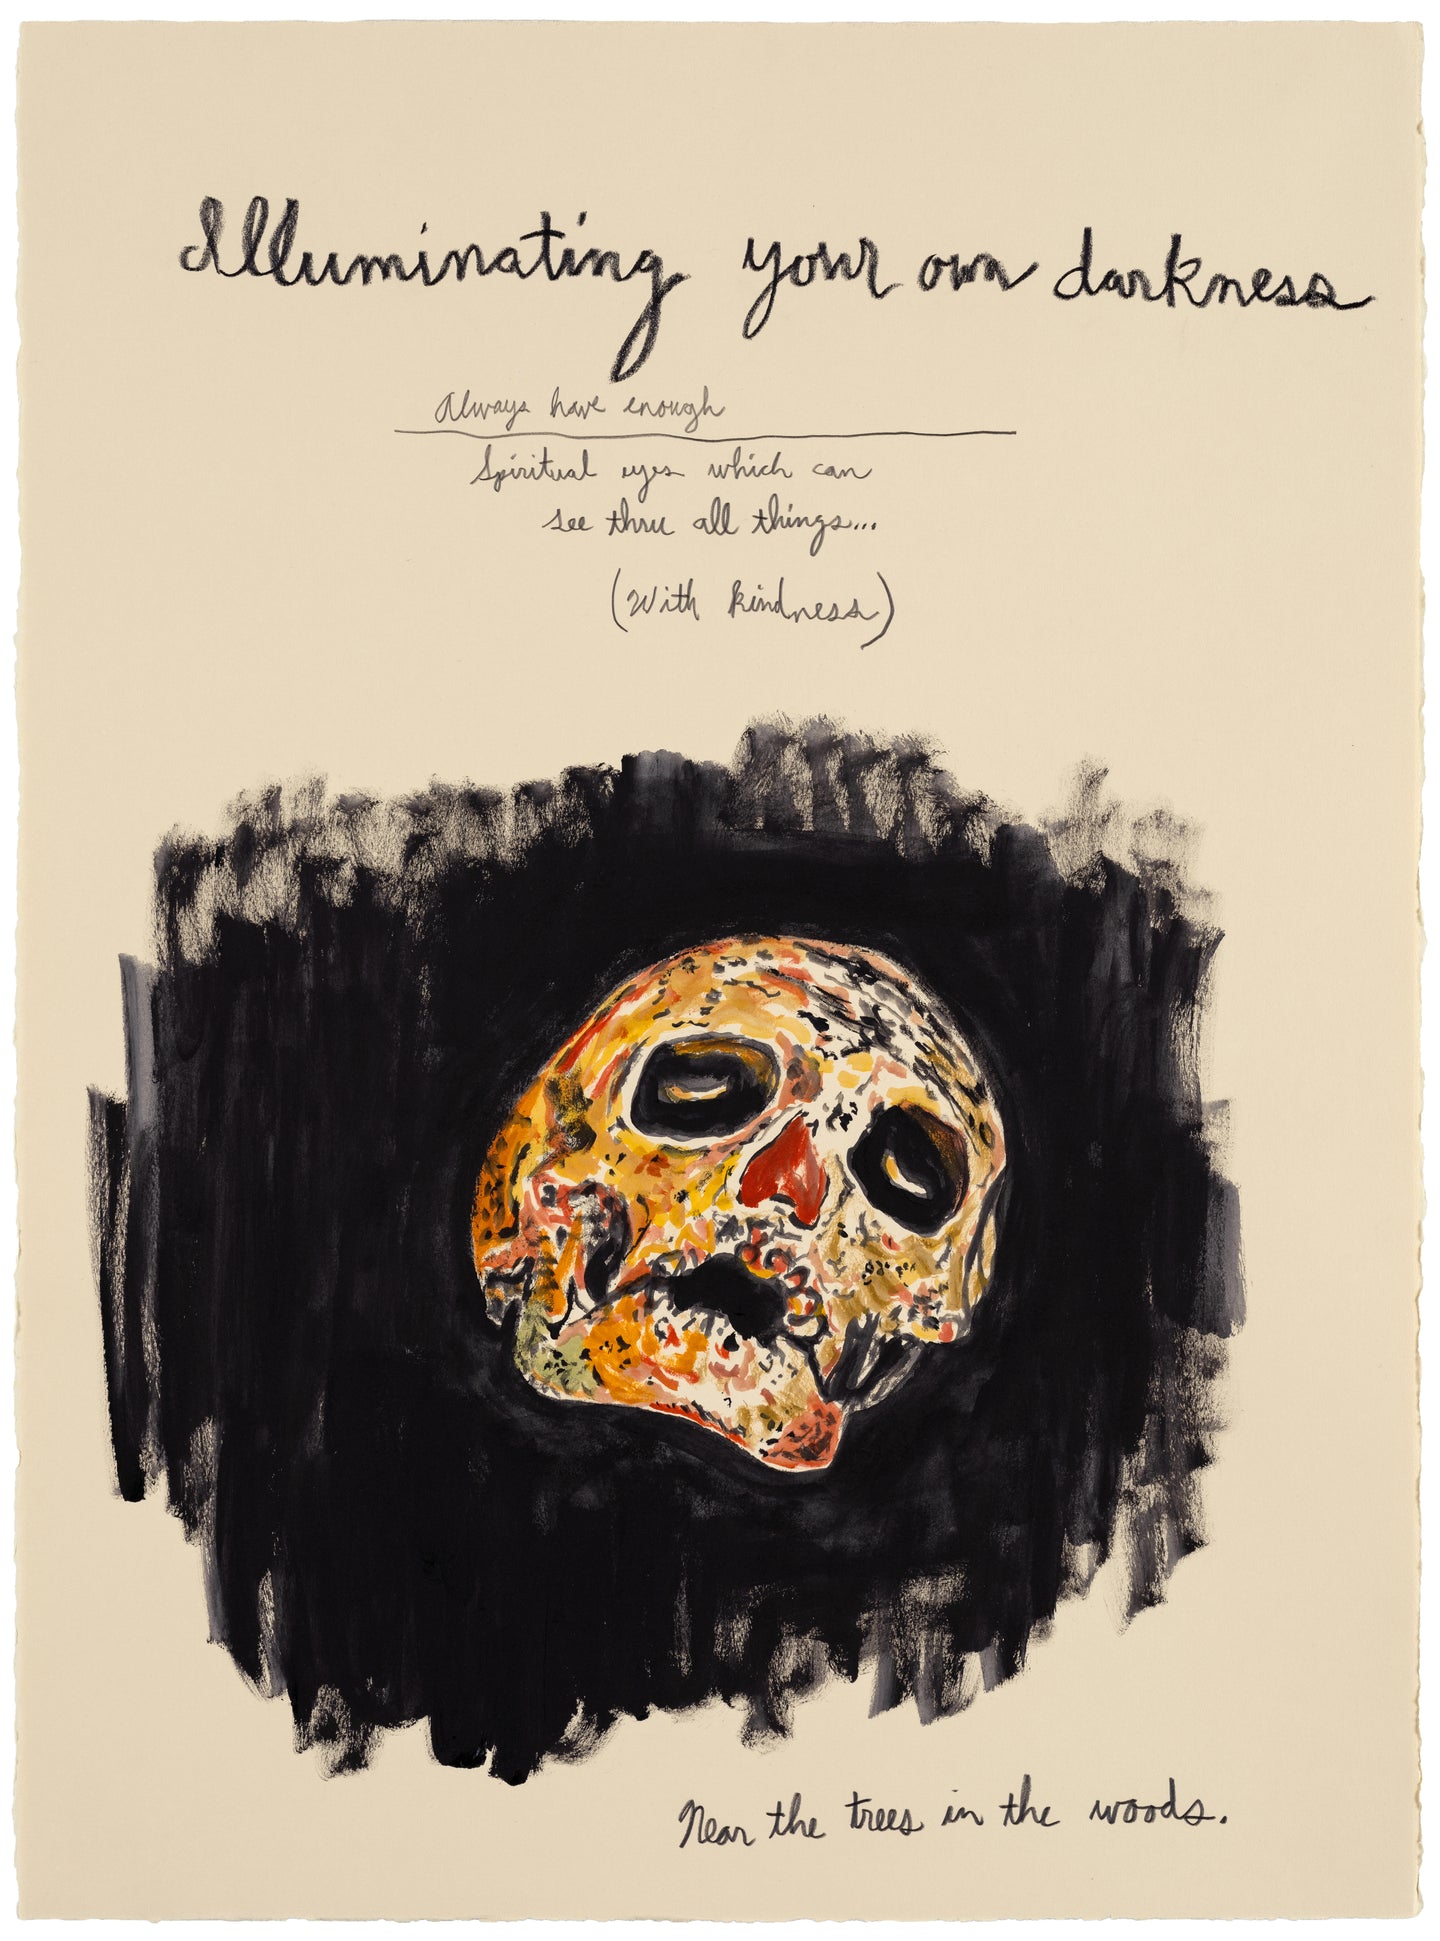 Illuminating your own darkness
Always have enough
Spiritual eyes which can
see thru all things...
(With kindness)
Near the trees in the woods.